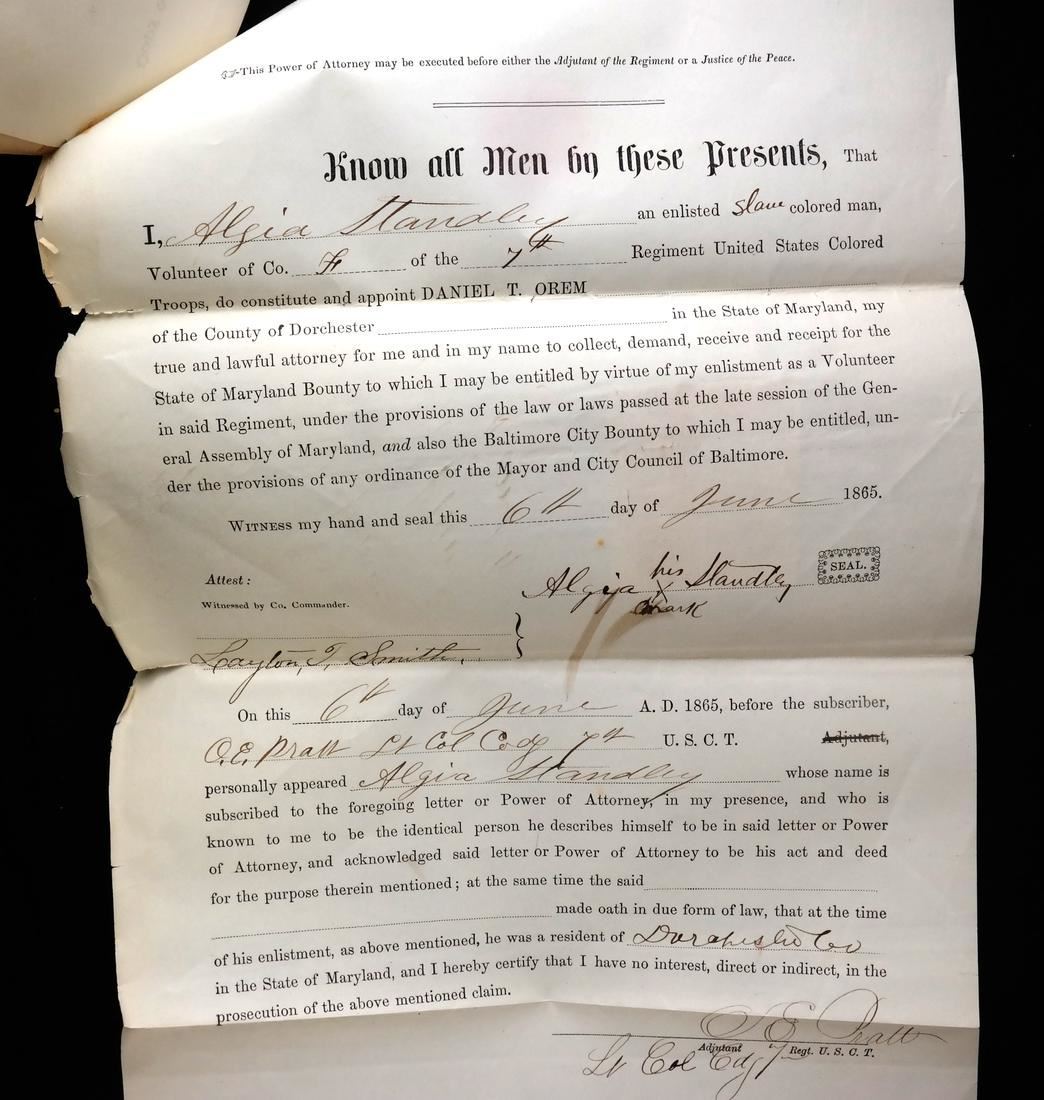 ☞This Power of Attorney may be executed before either the Adjutant of the Regiment or a Justice of the Peace.
Know all Men by these Presents, That
I, Algia Standley an enlisted Slave colored man,
Volunteer of Co. F of the 7th Regiment United States Colored
Troops, do constitute and appoint DANIEL T. OREM
of the County of Dorchester in the State of Maryland, my
true and lawful attorney for me and in my name to collect, demand, receive and receipt for the
State of Maryland Bounty to which I may be entitled by virtue of my enlistment as a Volunteer
in said Regiment, under the provisions of the law or laws passed at the late session of the Gen-
eral Assembly of Maryland, and also the Baltimore City Bounty to which I may be entitled, un-
der the provisions of any ordinance of the Mayor and City Council of Baltimore.
WITNESS my hand and seal this 6th day of June 1865.
Attest:
Algia his X mark Standley SEAL.
Witnessed by Co. Commander.
Layton, T, Smith.
On this 6th day of June A. D. 1865, before the subscriber,
O.E. Pratt Lt Col Codg 7th U. S. C. T. Adjutant,
personally appeared Algia Standley whose name is
subscribed to the foregoing letter or Power of Attorney, in my presence, and who is
known to me to be the identical person he describes himself to be in said letter or Power
of Attorney, and acknowledged said letter or Power of Attorney to be his act and deed
for the purpose therein mentioned; at the same time the said
made oath in due form of law, that at the time
of his enlistment, as above mentioned, he was a resident of Dorchester Co
in the State of Maryland, and I hereby certify that I have no interest, direct or indirect, in the
prosecution of the above mentioned claim.
O E Pratt
Adjutant 7 Regt. U. S. C. T.
Lt Col Cdg